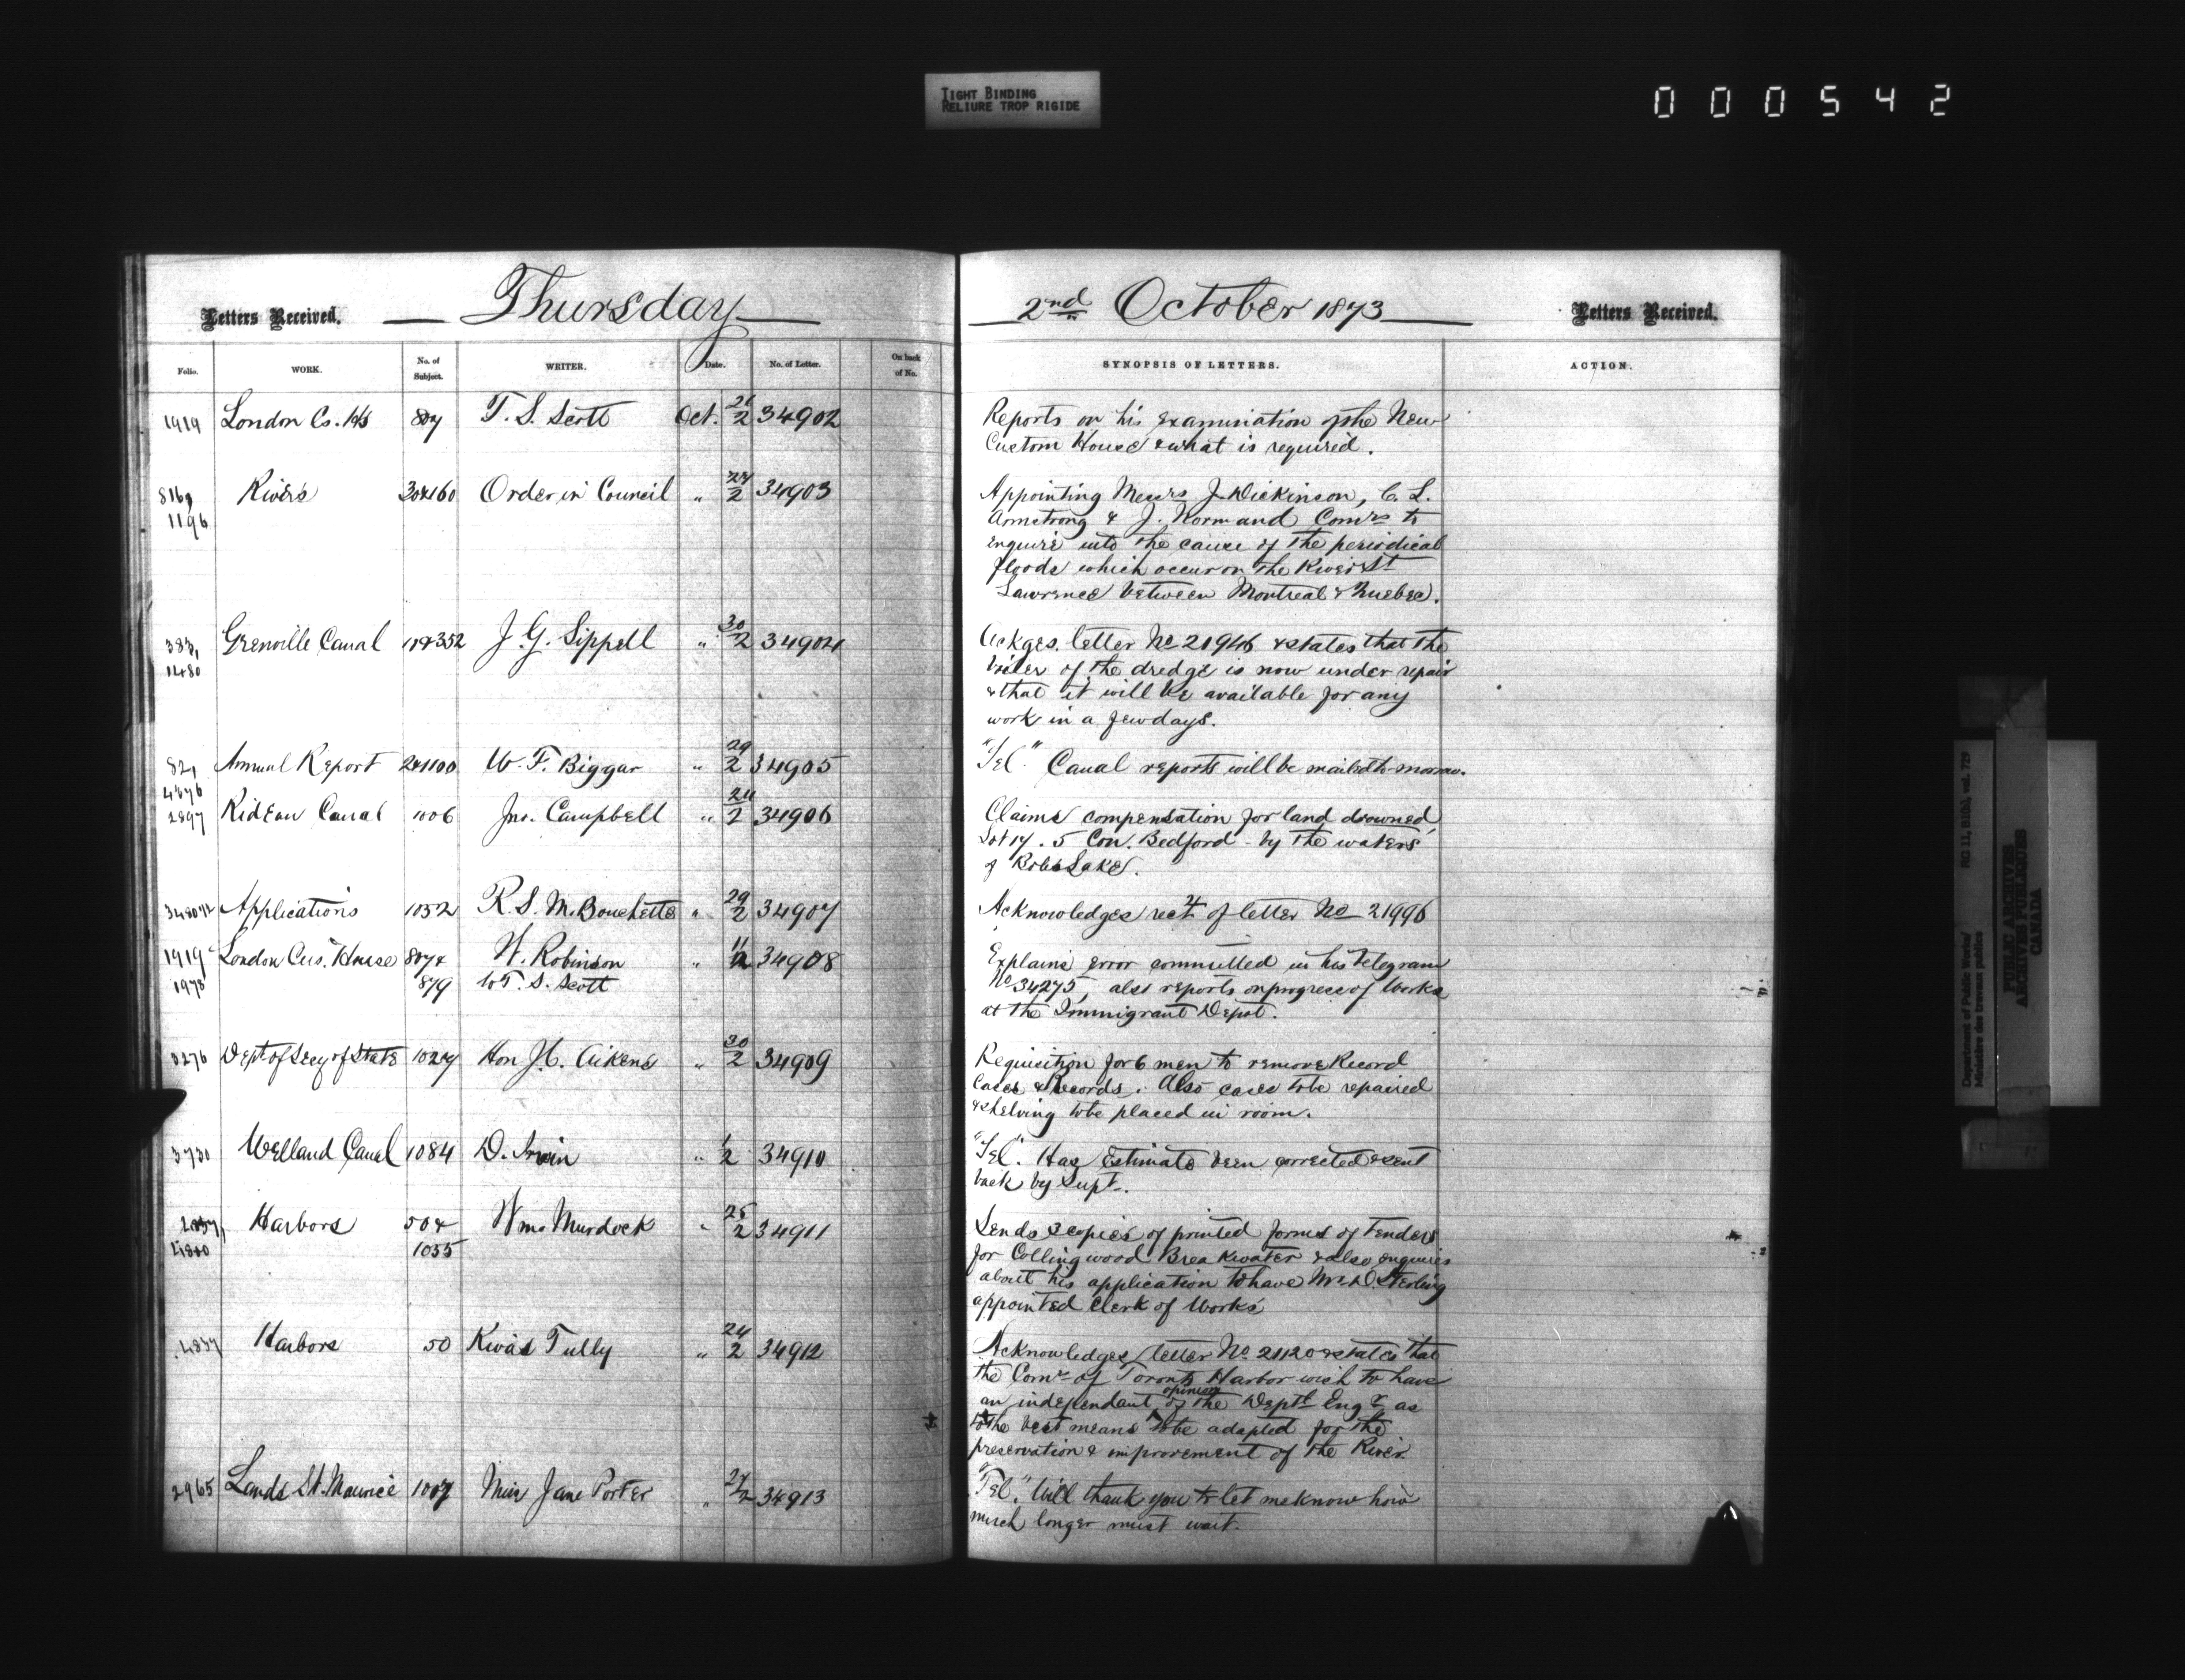 TIGHT BINDING
RELIURE TROP RIGIDE
000542
Letters Received. Thursday
2nd October 1873 Letters Received.
Folio. WORK. No. of Subject. WRITER. Date. No. of Letter. On back of No.
SYNOPSIS OF LETTERS. ACTION.
1919 London Cs. Hs 807 T. S. Scott Oct. 2 34902
Reports on his examination of the New
Custom House & what is required.
816, Rivers 30&160 Order in Council " 27/2 34903
1196
Appointing Messrs J. Dickinson, C. L.
Armstrong & J. Normand Comrs to
enquire into the cause of the periodical
floods which occur on the River St
Lawrence between Montreal & Quebec.
383, Grenville Canal 352 J. G. Sippell " 30/2 34904
1480
Ackges. letter No 21946 & states that the
boiler of the dredge is now under repair
& that it will be available for any
work in a few days.
82, Annual Report 2&1100 W. F. Biggar " 29/2 34905
4876
"Tel." Canal reports will be mailed to-morrow.
2897 Rideau Canal 1006 Jno. Campbell " 24/2 34906
Claims compensation for land drowned,
Lot 17. 5 Con. Bedford - by the waters
of Bobs Lake.
Applications 1052 R. S. M. Bouchette " 29/2 34907
Acknowledges rect of letter No 21996
1919 London Cus. House 807& W. Robinson " 11/2 34908
1978 879 to T. S. Scott
Explains error committed in his telegram
No 34275, also reports on progress of Works
at the Immigrant Depot.
3276 Dept of Secy of State 1027 Hon J. C. Aikens " 30/2 34909
Requisition for 6 men to remove Record
Cases & Records. Also cases to be repaired
& shelving to be placed in room.
3730 Welland Canal 1084 D. Irwin " 1/2 34910
"Tel". Has Estimate been corrected & sent
back by Supt.
Harbors 50& Wm. Murdock " 25/2 34911
1035
Sends 3 copies of printed forms of Tenders
for Collingwood Breakwater & also enquires
about his application to have Mr. D. Sterling
appointed Clerk of Works
Harbors 50 Kivas Tully " 24/2 34912
Acknowledges letter No 21120 & states that
the Comrs of Toronto Harbor wish to have
an independant opinion of the Deptl Engr as
to the best means to be adapted for the
preservation & improvement of the River.
2965 Lands St. Maurice 1007 Miss Jane Porter " 27/2 34913
"Tel." Will thank you to let me know how
much longer must wait.
Department of Public Works/ RG 11, B1(b), vol. 729
Ministère des travaux publics
PUBLIC ARCHIVES
ARCHIVES PUBLIQUES
CANADA